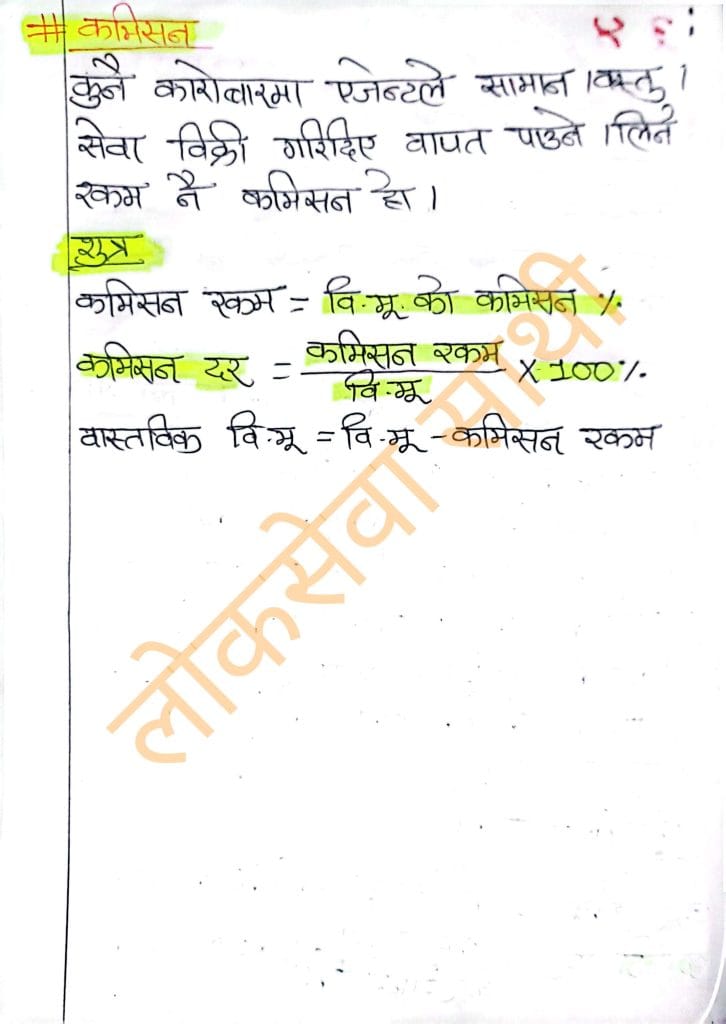 # कमिसन
कुनै कारोबारमा एजेन्टले सामान ।वस्तु ।
सेवा विक्री गरिदिए वापत पाउने ।लिने
रकम नै कमिसन हो ।
शुत्र
कमिसन रकम = वि.मू. को कमिसन %
कमिसन दर = कमिसन रकम / वि.मू × 100%
वास्तविक वि.मू = वि.मू - कमिसन रकम
लोकसेवा साथी